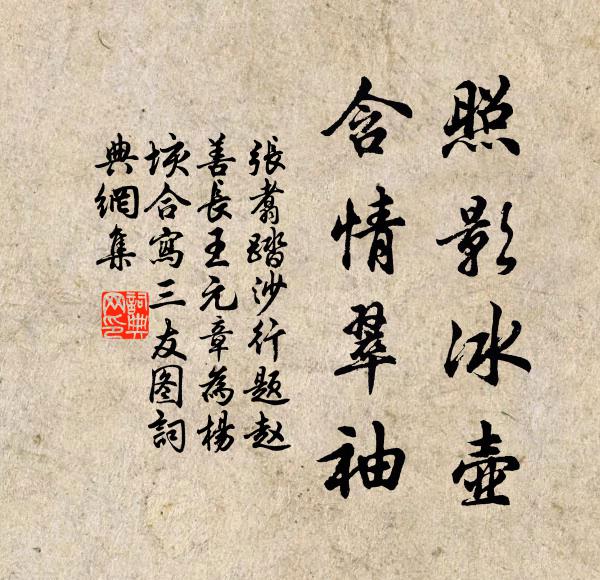 照影冰壺
含情翠袖
張翥踏沙行題赵
善長王元章為楊
垓合寫三友图詞
典網集
詞典網印